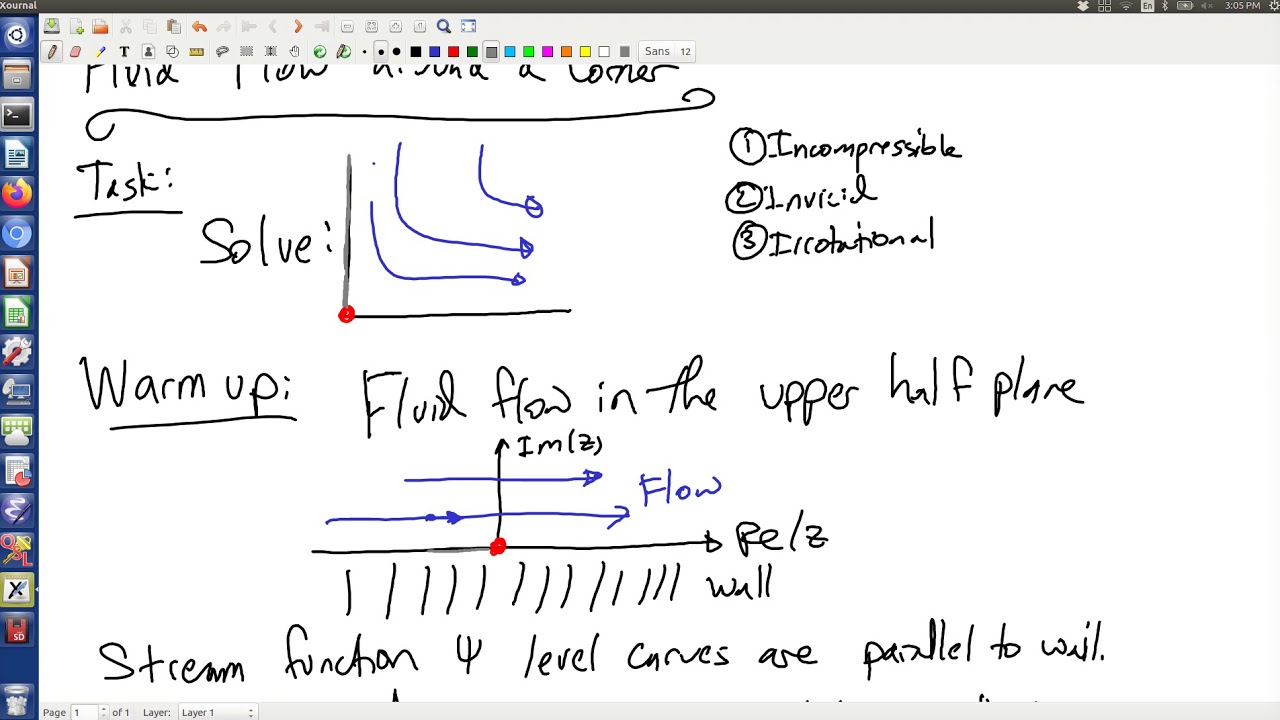 Xournal
En
3:05 PM
Sans 12
Fluid Flow around a corner
Task:
Solve:
① Incompressible
② Invicid
③ Irrotational
Warm up: Fluid flow in the upper half plane
Im(z)
Flow
Re/z
wall
Stream function Ψ level curves are parallel to wall.
Page 1 of 1 Layer: Layer 1